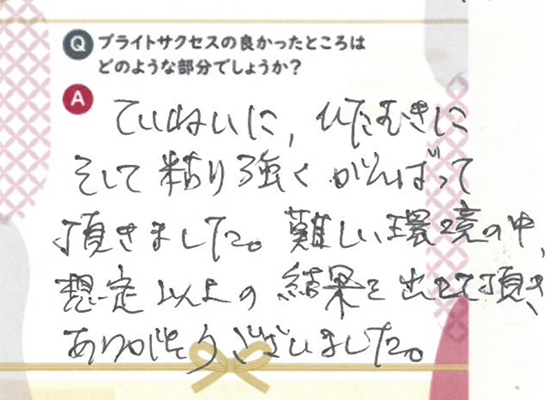 Q ブライトサクセスの良かったところは
どのような部分でしょうか?
A ていねいに、ひたむきに
そして粘り強くがんばって
頂きました。難しい環境の中、
想定以上の結果を出して頂き
ありがとうございました。